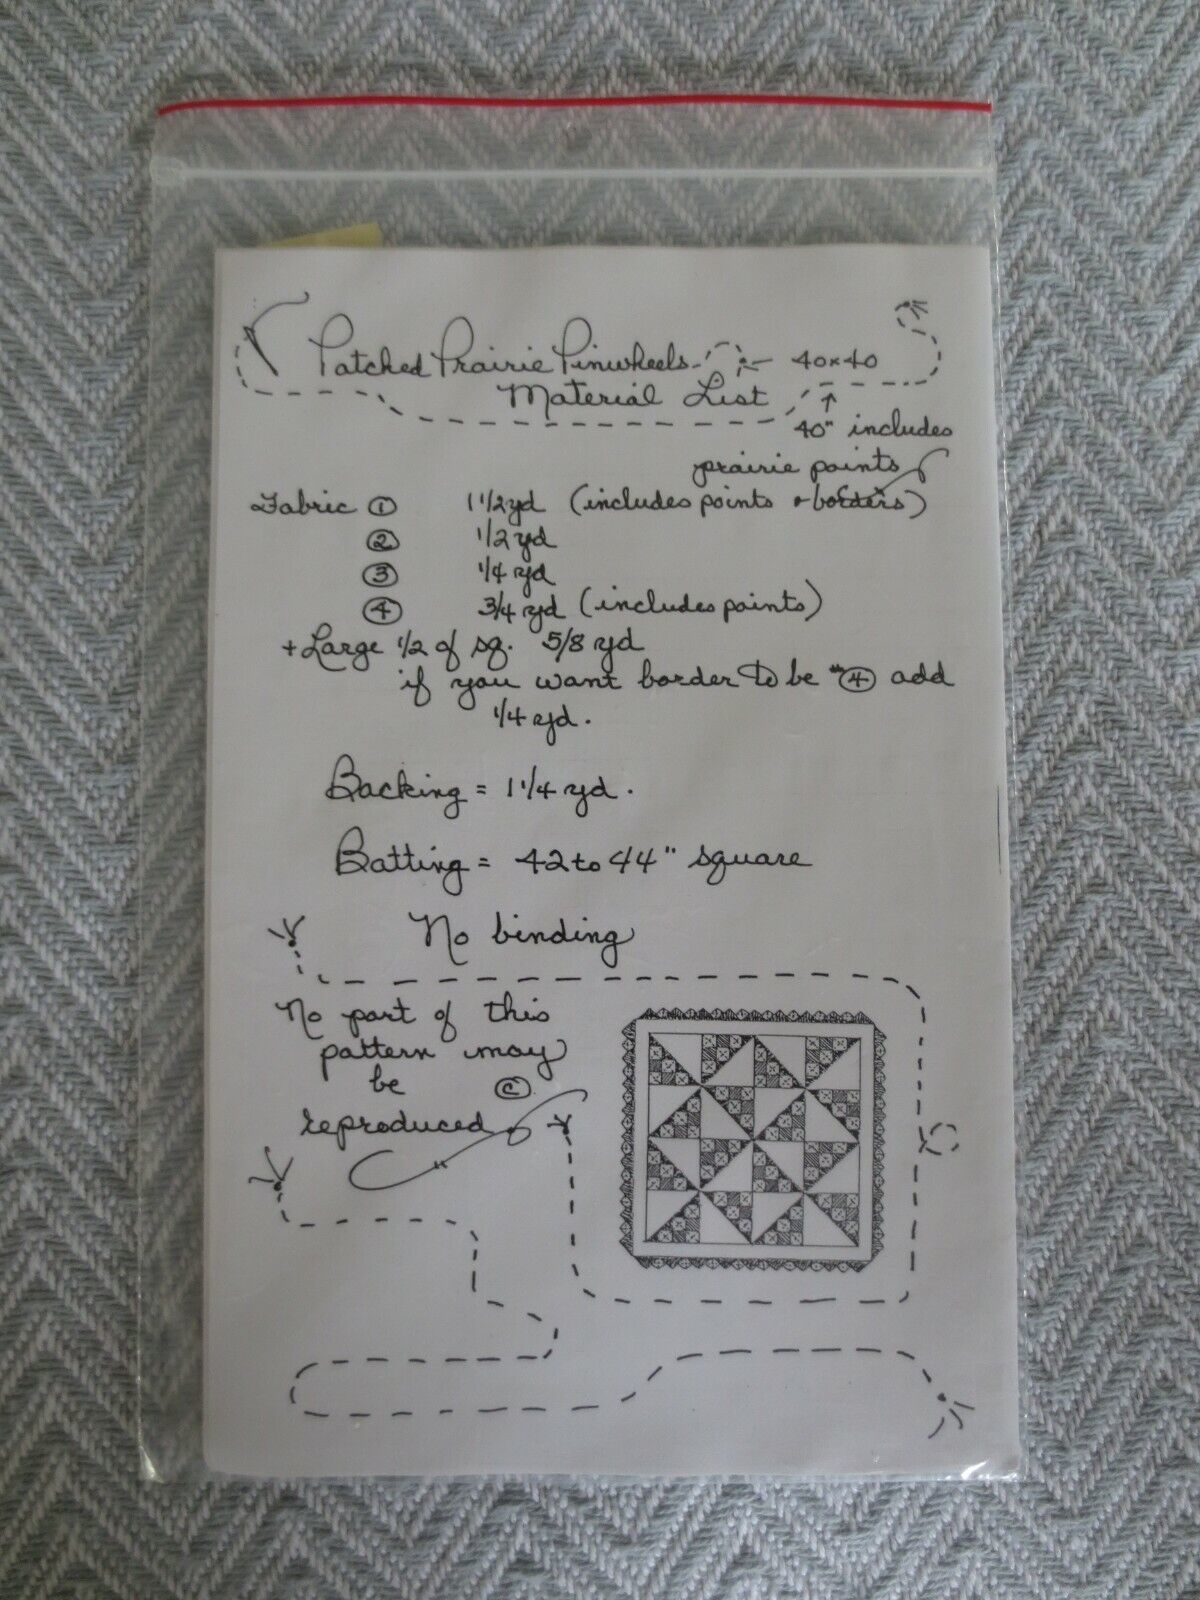 Patched Prairie Pinwheels 40x40
Material List
40" includes
prairie points
Fabric ① 1 1/2 yd (includes points & borders)
② 1/2 yd
③ 1/4 yd
④ 3/4 yd (includes points)
+ Large 1/2 of sq. 5/8 yd
if you want border to be #④ add
1/4 yd.
Backing = 1 1/4 yd.
Batting = 42 to 44" square
No binding
No part of this
pattern may
be ©
reproduced